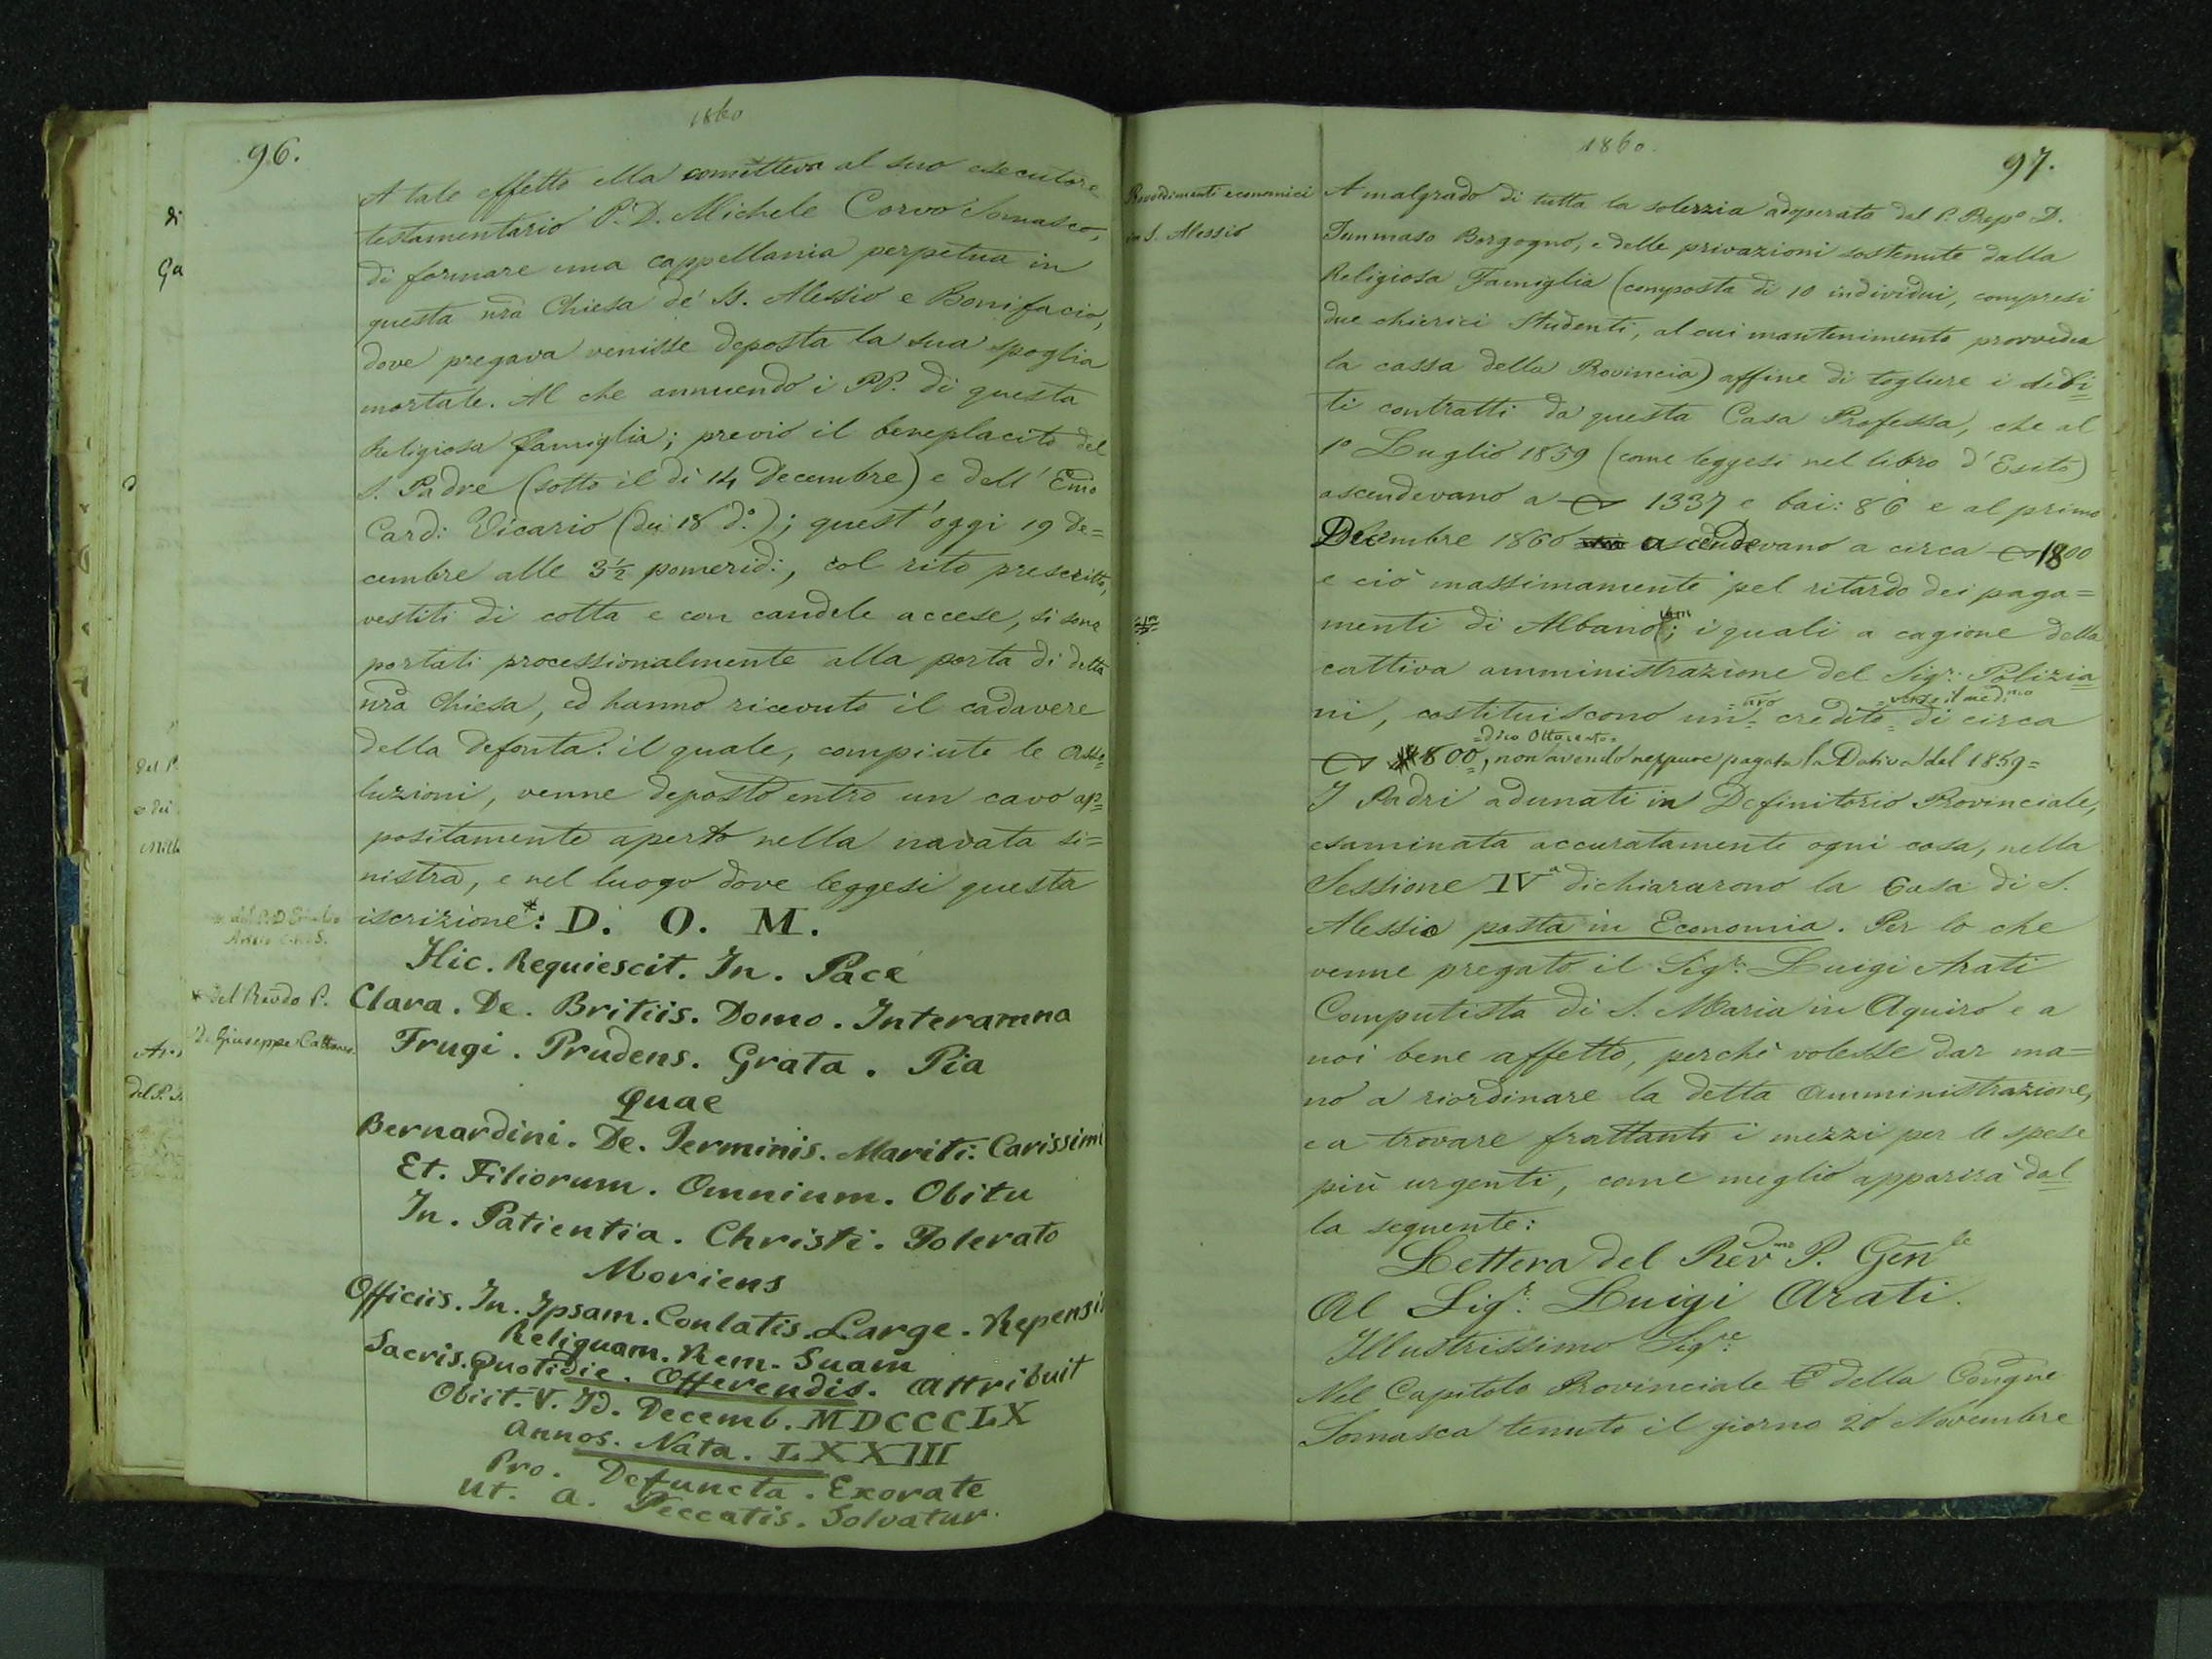 1860
96.
A tale effetto ella comitteva al suo esecutore
testamentario P. D. Michele Corvo Somasco,
di formare una cappellania perpetua in
questa nra Chiesa de' SS. Alessio e Bonifacio,
dove pregava venisse deposta la sua spoglia
mortale. Al che annuendo i PP. di questa
Religiosa famiglia; previo il beneplacito del
S. Padre (sotto il dì 14 Decembre) e dell' Emo
Card: Vicario (dei 18 do.); quest'oggi 19 De=
cembre alle 3½ pomerid:, col rito prescritto,
vestiti di cotta e con candele accese, si sono
portati processionalmente alla porta di detta
nra Chiesa, ed hanno ricevuto il cadavere
della defonta: il quale, compiute le Asso=
luzioni, venne deposto entro un cavo ap=
positamente aperto nella navata si=
nistra, e nel luogo dove leggesi questa
iscrizione*: D. O. M.
Hic. Requiescit. In. Pace
* del Revdo P.
D. Giuseppe Cattaneo
Clara. De. Britiis. Domo. Interamna
Frugi. Prudens. Grata. Pia
Quae
Bernardini. De. Terminis. Mariti. Carissimi
Et. Filiorum. Omnium. Obitu
In. Patientia. Christi. Tolerato
Moriens
Officiis. In. Ipsam. Conlatis. Large. Repensis
Reliquam. Rem. Suam
Sacris. Quotidie. Offerendis. Attribuit
Obiit. V. Id. Decemb. MDCCCLX
Annos. Nata. LXXIII
Pro. Defuncta. Exorate
Ut. A. Peccatis. Solvatur.
di
Ga
del P.
e dei
del P.
1860.
97.
Provvedimenti economici
in S. Alessio
A malgrado di tutta la solerzia adoperata dal P. Repo D.
Tommaso Borgogno, e delle privazioni sostenute dalla
Religiosa Famiglia (composta di 10 individui, compresi
due chierici Studenti, al cui mantenimento provvedea
la cassa della Provincia) affine di togliere i debi=
ti contratti da questa Casa Professa, che al
1o Luglio 1859 (come leggesi nel libro d'Esito)
ascendevano a 1337 e bai: 86 e al primo
Decembre 1860 ascendevano a circa 1800
e ciò massimamente pel ritardo dei paga=
menti di Albano; i quali a cagione della
cattiva amministrazione del Sigr: Polizia=
ni, costituiscono un credito di circa
=dico Ottocento=
800=, non avendo neppure pagata la Dativa del 1859=
I Padri adunati in Definitorio Provinciale,
esaminata accuratamente ogni cosa, nella
Sessione IVa dichiararono la Casa di S.
Alessio posta in Economia. Per lo che
venne pregato il Sigr: Luigi Arati
Computista di S. Maria in Aquiro e a
noi bene affetto, perchè volesse dar ma=
no a riordinare la detta Amministrazione,
e a trovare frattanto i mezzi per le spese
più urgenti, come meglio apparirà dal=
la seguente:
Lettera del Revmo P. Genle
Al Sigr: Luigi Arati.
Illustrissimo Sigre:
Nel Capitolo Provinciale della Congne
Somasca tenuto il giorno 20 Novembre